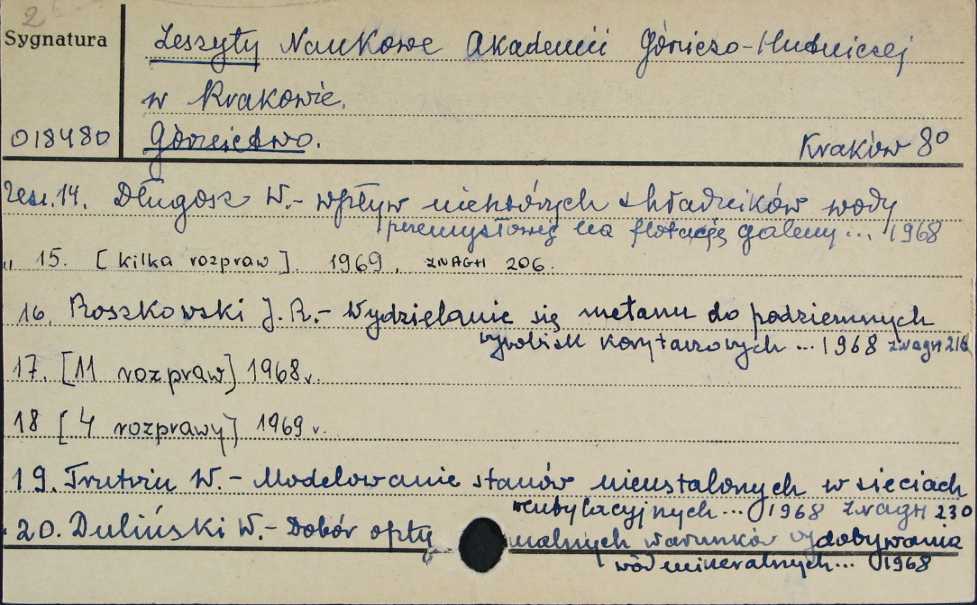 2
Sygnatura
Zeszyty Naukowe Akademii Górniczo-Hutniczej
w Krakowie.
018480
Górnictwo.
Kraków 8º
Zesz. 14. Długosz W. - Wpływ niektórych składników wody
przemysłowej na flotację galeny... 1968
" 15. [kilka rozpraw]. 1969. ZNAGH 206.
16. Roszkowski J. R. - Wydzielanie się metanu do podziemnych
wyrobisk korytarzowych ... 1968 ZNAGH 216
17. [11 rozpraw] 1968.
18 [4 rozprawy] 1969.
19. Trutwin W. - Modelowanie stanów nieustalonych w sieciach
wentylacyjnych ... 1968 ZNAGH 230
20. Duliński W. - Dobór optymalnych warunków wydobywania
wód mineralnych... 1968